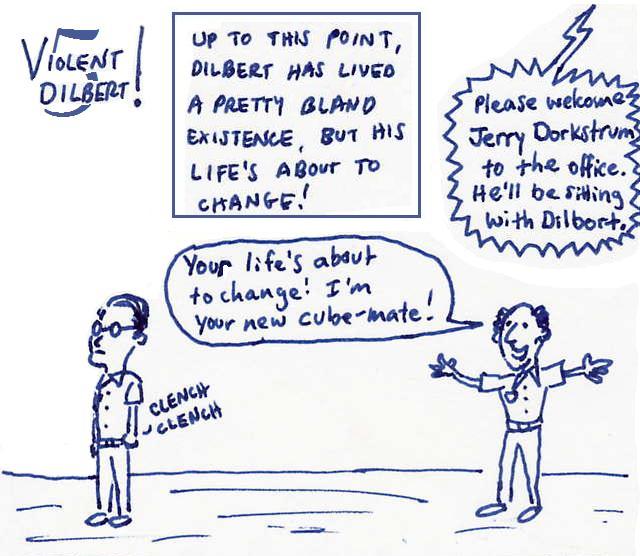 VIOLENT
5
DILBERT!
UP TO THIS POINT,
DILBERT HAS LIVED
A PRETTY BLAND
EXISTENCE, BUT HIS
LIFE'S ABOUT TO
CHANGE!
Please welcome
Jerry Dorkstrum
to the office.
He'll be sitting
with Dilbort.
Your life's about
to change! I'm
your new cube-mate!
CLENCH
CLENCH